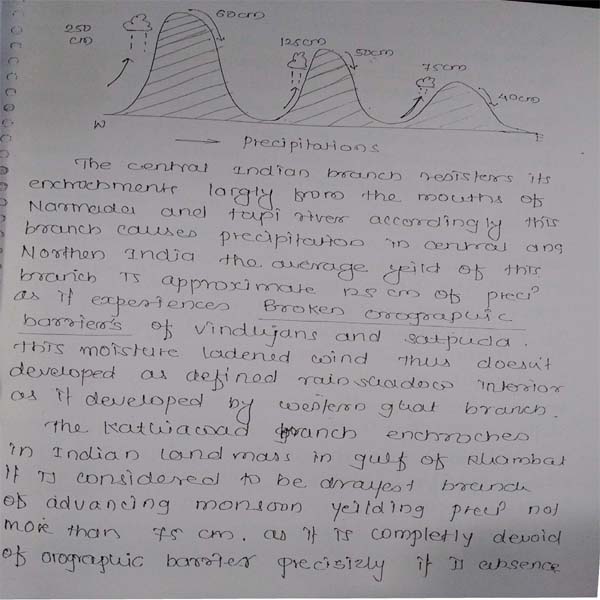 250 cm
60cm
125cm
50cm
75cm
40cm
W
E
→ precipitations
The central Indian branch resisters its
enchrochments largly from the mouths of
Narmada and tapi river accordingly this
branch causes precipitation in central and
Northen India the average yeild of this
branch is approximate 125 cm of precin
as it experiences Broken orographic
barriers of vindhyans and satpuda.
This moisture ladened wind thus doesn't
developed as defined rainshadows interior
as it developed by western ghat branch.
The Kathiawad branch enchroches
in Indian landmass in gulf of Khambat
it is considered to be drayest branch
of advancing monsoon yeilding precin not
more than 75 cm. as it is completly devoid
of orographic barrier precisizly it is absence